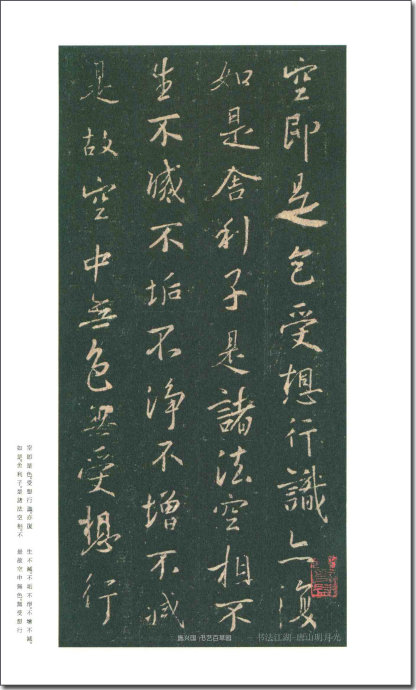 空即是色受想行識亦復
如是舍利子是諸法空相不
生不滅不垢不淨不增不減
是故空中無色無受想行
空即是色。受想行識。亦復
如是。舍利子。是諸法空相。不
生不滅。不垢不淨。不增不減。
是故空中無色。無受想行
书艺百草园
书法江湖-唐山明月光